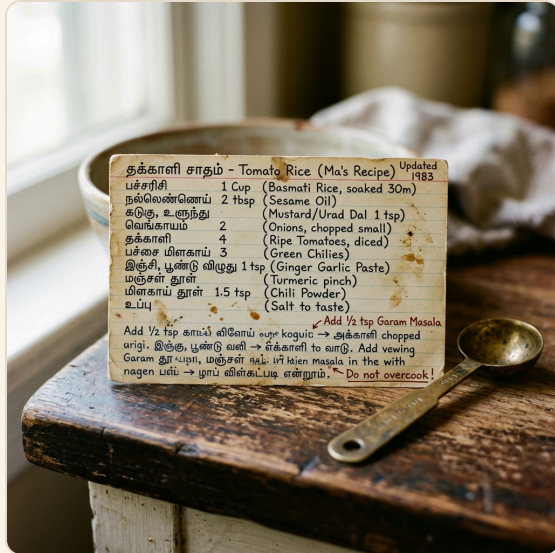 தக்காளி சாதம் - Tomato Rice (Ma's Recipe) Updated 1983
பச்சரிசி 1 Cup (Basmati Rice, soaked 30m)
நல்லெண்ணெய் 2 tbsp (Sesame Oil)
கடுகு, உளுந்து (Mustard/Urad Dal 1 tsp)
வெங்காயம் 2 (Onions, chopped small)
தக்காளி 4 (Ripe Tomatoes, diced)
பச்சை மிளகாய் 3 (Green Chilies)
இஞ்சி, பூண்டு விழுது 1 tsp (Ginger Garlic Paste)
மஞ்சள் தூள் (Turmeric pinch)
மிளகாய் தூள் 1.5 tsp (Chili Powder)
உப்பு (Salt to taste)
Add ½ tsp Garam Masala
Add ½ tsp விளேய் → chopped
urigi. இஞ்கு, பூண்டு வலி → to வாடு. Add vewing
Garam மஞ்சள் masala in the with
nagen → என்றும்.
Do not overcook!